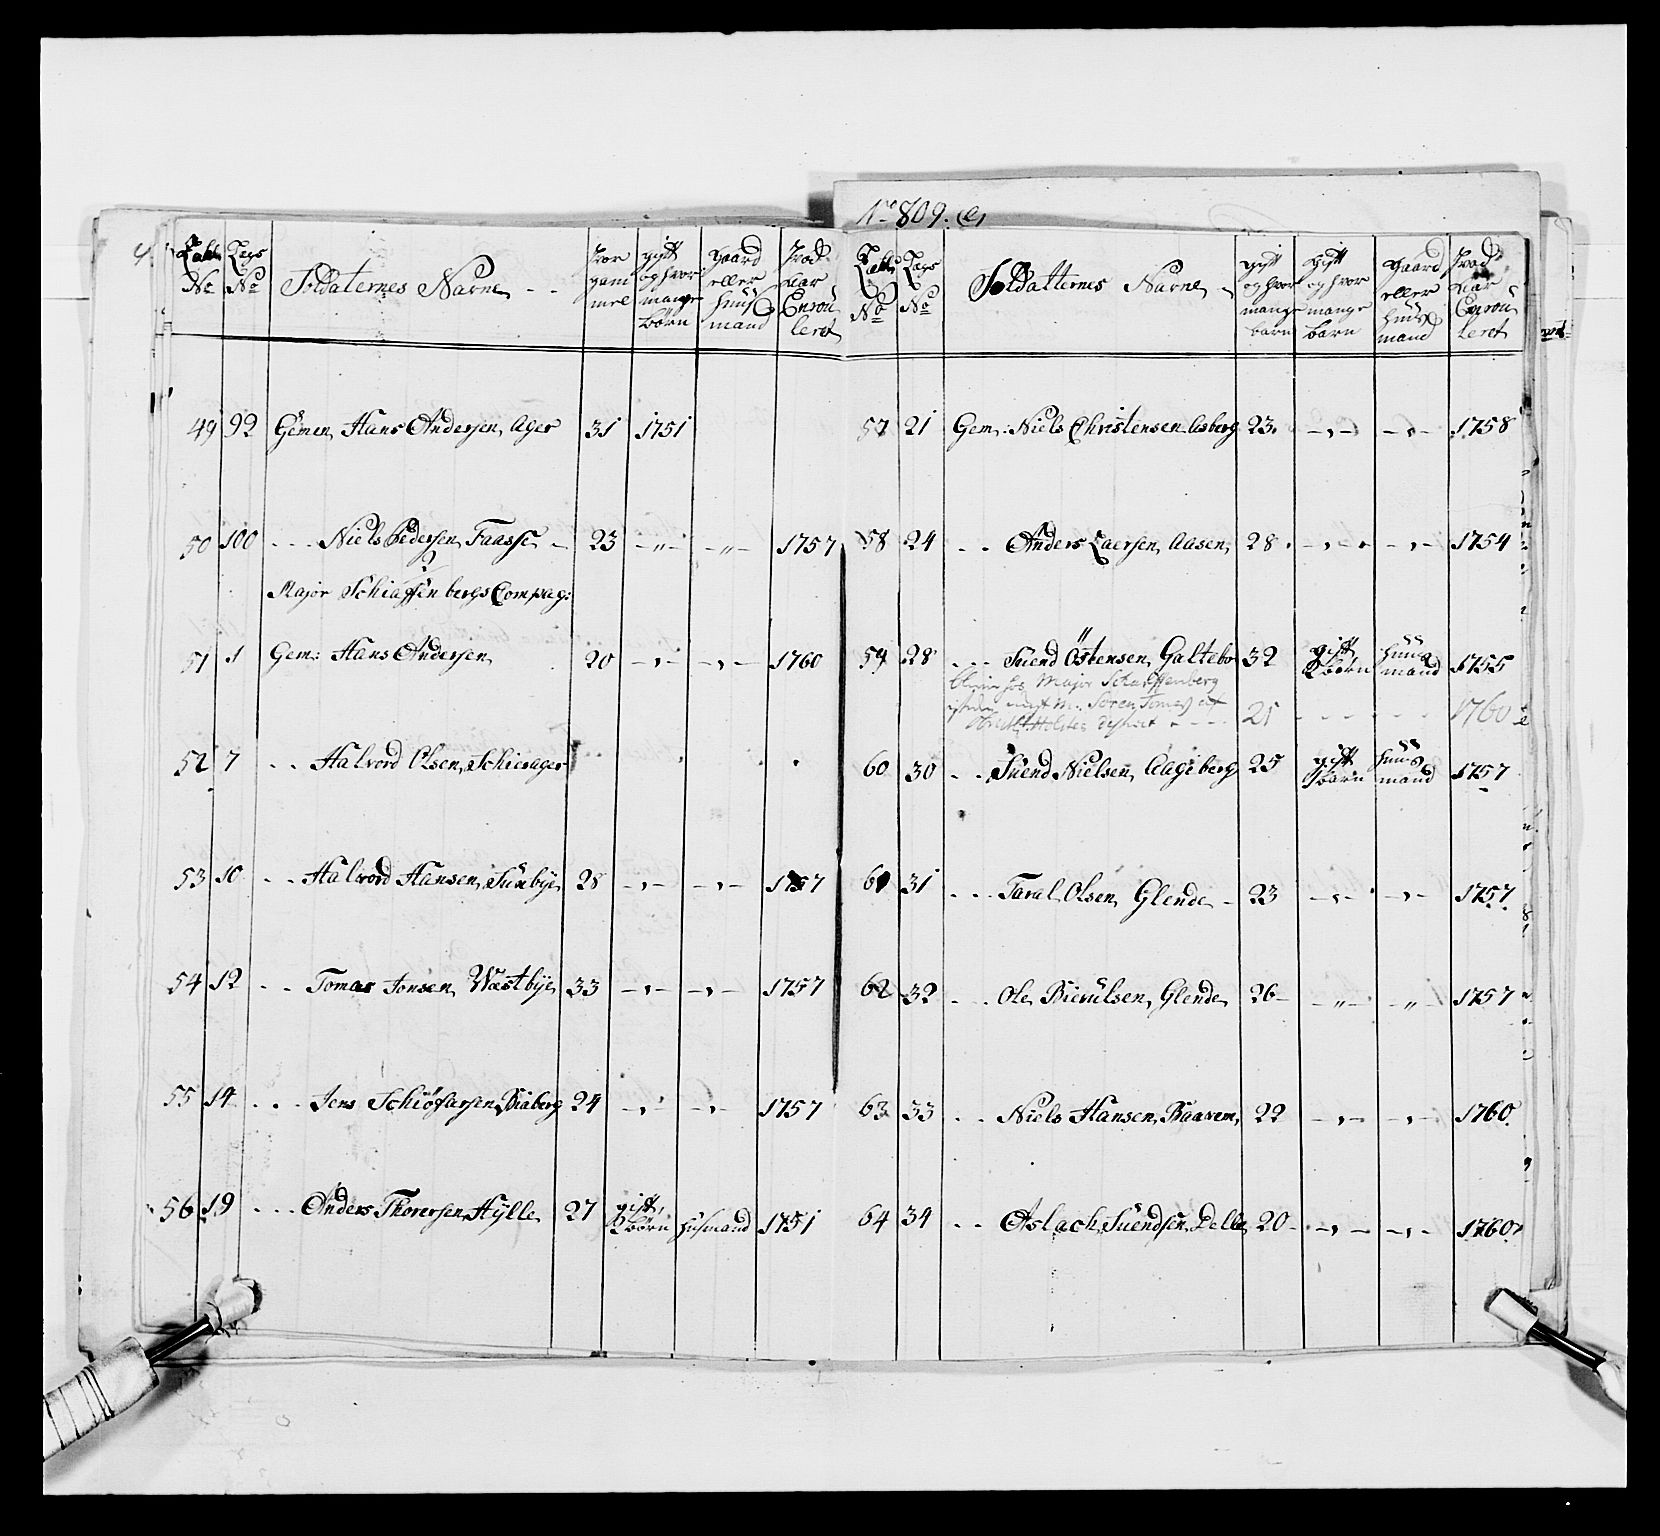 No 809. e
Tall No | Legs No | Soldaternes Navne | hvor gam mel | gift og hvor mange børn | gaard eller huus mand | hvad aar Enrou leret
49 | 92 | Gemen Hans Andersen Ager | 31 | 1751
50 | 100 | - - - Niels Pedersen Faasse - | 23 | - „ - | - „ - | 1757
Major Schiaffenbergs Compag:
51 | 1 | Gem: Hans Andersen | 20 | - , - | - , - | 1760
52 | 7 | - - Halvord Olsen Schierager
53 | 10 | - - Halvord Hansen Sunbye | 28 | - , - | - , - | 1757
54 | 12 | - - Tomas Jonsen Wæstbye | 33 | - , - | - , - | 1757
55 | 14 | - - - Jens Schiøfarsen Biaberg | 24 | - , - | - , - | 1757
56 | 19 | - - - Anders Thorersen Hylle | 27 | gift, 2 børn | husmand | 1751
Tall No | Legs No | Soldatternes Navne | gift og hvor mange barn | gift og hvor mange barn | gaard eller huus mand | hvad aar Enrou leret
57 | 21 | Gem: Niels Christensen Asberg | 23. | - , - | - , - | 1758
58 | 24 | - - Anders Laersen Aasen | 28 | - , - | - , - | 1754
59 | 28 | - - - Suend Östensen Galtebo | 32 | gift 2 børn | huus mand | 1755
hos Major Scharffenberg
M. Søren Tomes af
Holstes | 21 | - - - - | 1760
60 | 30 | - - Suend Nielsen Aageberg | 25 | gift 1 barn | huus mand | 1757
61 | 31 | - - - Taral Olsen Glende - | 23 | - , - | - , - | 1757
62 | 32 | - - - Ole Bierulsen Glende | 26 - | - „ - | - „ - | 1757
63 | 33 | - - Niels Hansen Baarem | 22 | - , - | - , - | 1760
64 | 34 | - - Aslach Suendsen Delle | 20 - | - , - | - , - | 1760